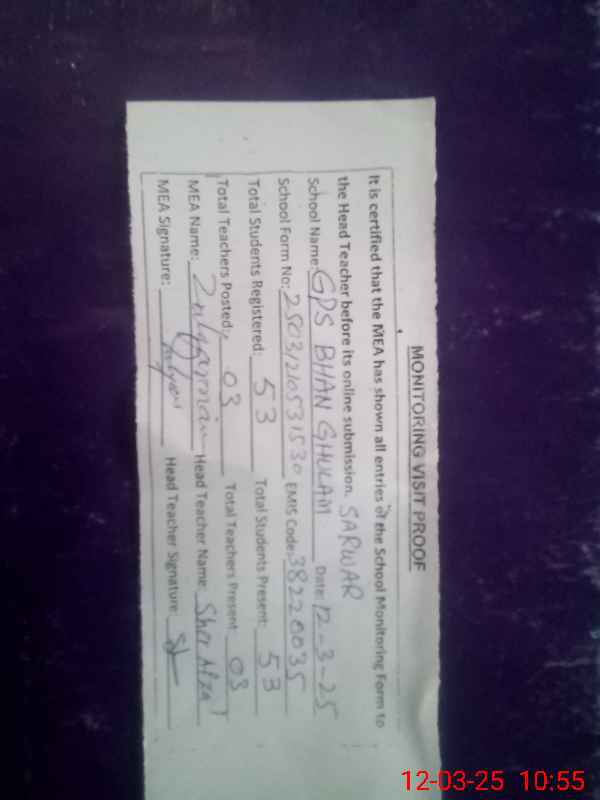 MONITORING VISIT PROOF
It is certified that the MEA has shown all entries of the School Monitoring Form to
the Head Teacher before its online submission.
School Name: GPS BHAN GHULAM SARWAR Date: 12-3-25
School Form No: EMIS Code: 38220035
Total Students Registered: 53 Total Students Present: 53
Total Teachers Posted: 03 Total Teachers Present 03
MEA Name: Head Teacher Name: Sher Afzal
MEA Signature: Head Teacher Signature:
12-03-25 10:55